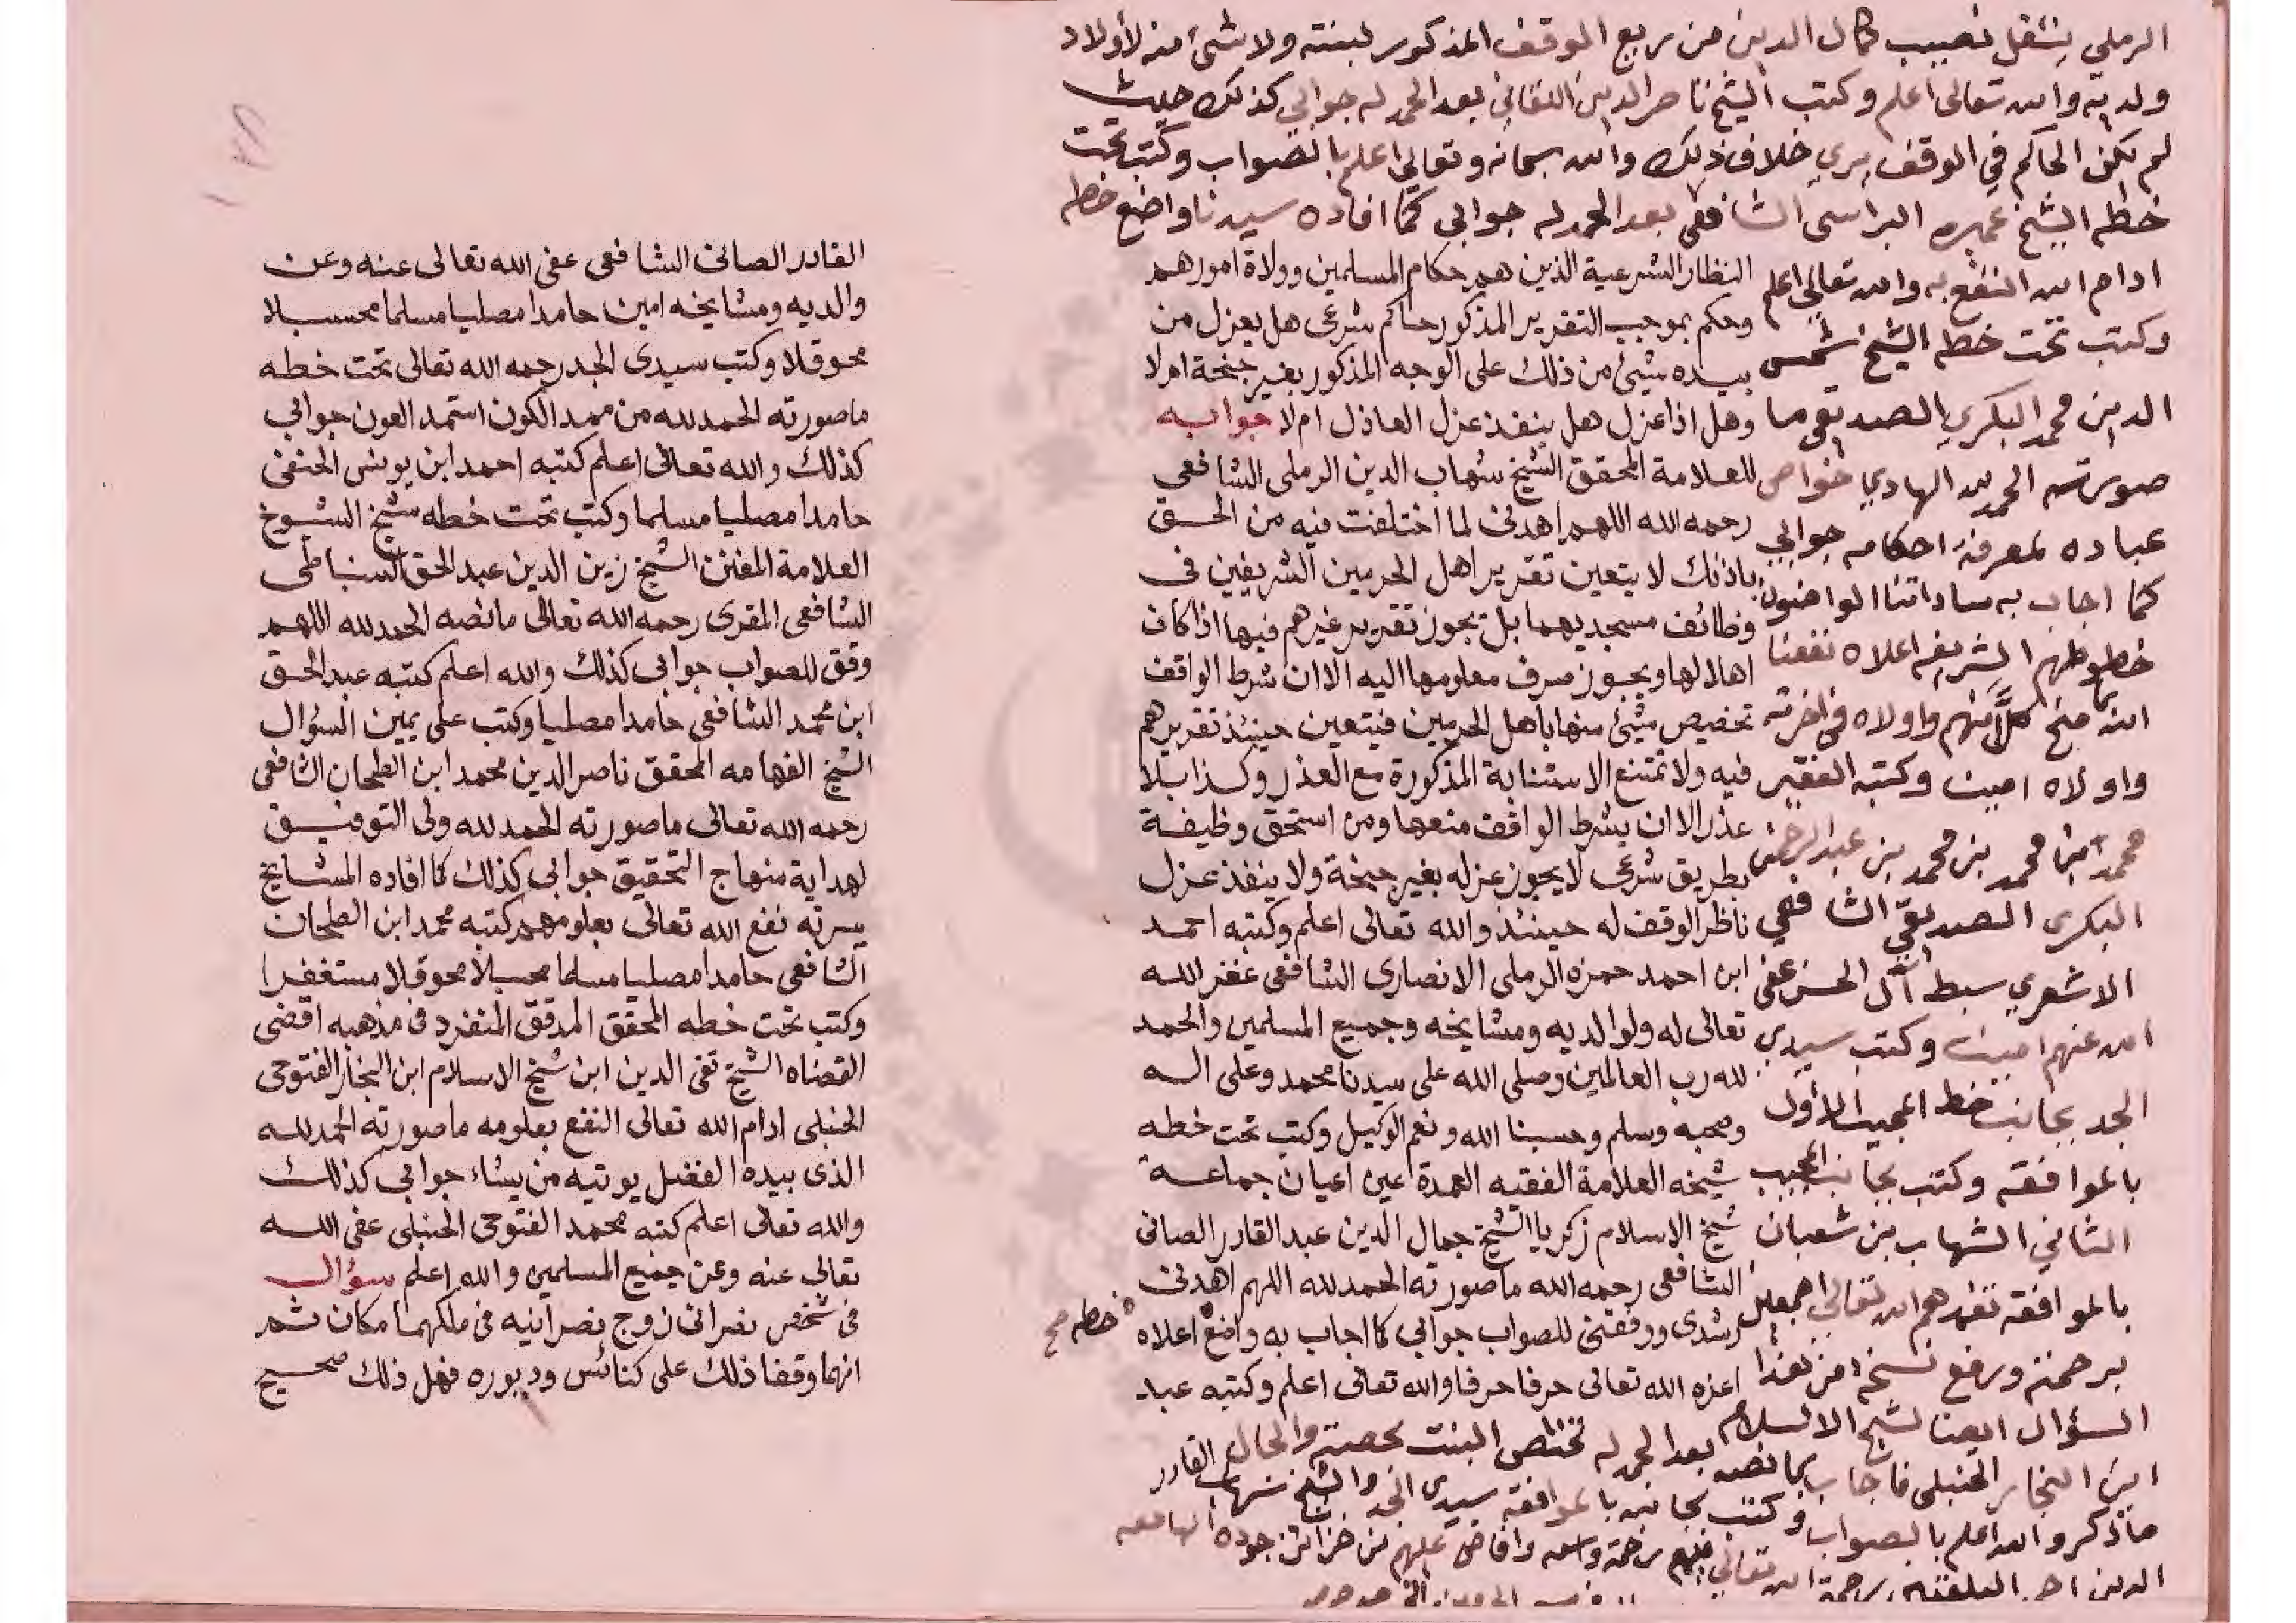 الرملي ينتقل نصيب كمال الدين من ريع الوقف المذكور لبنته ولا شئ منه لأولاد
ولديه والله تعالى اعلم وكتب الشيخ ناصر الدين اللقاني بعد الحمد له جوابي كذلك حيث
لم يكن الحاكم في الوقف يري خلاف ذلك والله سبحانه وتعالى اعلم بالصواب وكتب تحت
خطه الشيخ عميره البرلسي الشافعي بعد الحمد له جوابي كما افاده سيدنا واضع خطه
ادام الله النفع به والله تعالى اعلم
وكتب تحت خطه الشيخ شمس
الدين محمد البكري الصديقي ما
صورته الحمد لله الهادي خواص
عباده لمعرفة احكامه جوابي
كما اجاب به ساداتنا الواضعون
خطوطهم الشريفه اعلاه نفعنا
الله بهم منح كلًّا منهم واولاه في اخرته
واولاه امين وكتبه الفقير
محمد ابن محمد بن محمد بن عبد الرحمن
البكري الصديقي الشافعي
الاشعري سبط آل الحسن عفى
الله عنهم امين وكتب سيدي
الجد بجانب خط المجيب الأول
بالموافقه وكتب بجانب المجيب
الثاني الشهاب بن شعبان
بالموافقه تغمدهم الله تعالى اجمعين
برحمته ورفع نسخة من هذا
السؤال ايضا لشيخ الاسلام
ابن النجار الحنبلي فاجاب بما نصه بعد الحمد له تختص البنت بحصته والحال
ما ذكر والله اعلم بالصواب وكتب بجانبه بالموافقه سيدي الجد والشيخ شهاب
الدين احمد البلقيني رحمة الله تعالى عليهم رحمة واسعه وافاض عليهم من خزائن جوده الهامعه
النظار الشرعية الذين هم حكام المسلمين وولاة امورهم
وحكم بموجب التقرير المذكور حاكم شرعى هل يعزل من
بيده شيئ من ذلك على الوجه المذكور بغير جنحة ام لا
وهل اذا عزل هل ينفذ عزل العاذل ام لا جوابه
للعلامة المحقق الشيخ شهاب الدين الرملى الشافعى
رحمه الله اللهم اهدنى لما اختلفت فيه من الحق
باذنك لا يتعين تقرير اهل الحرمين الشريفين فى
وظائف مسجديهما بل يجوز تقرير غيرهم فيها اذا كان
اهلا لها ويجوز صرف معلومها اليه الا ان شرط الواقف
تخصيص شيئ منها باهل الحرمين فيتعين حينئذ تقريرهم
فيه ولا تمتنع الاستنابة المذكورة مع العذر وكذا بلا
عذر الا ان يشرط الواقف منعها ومن استحق وظيفة
بطريق شرعى لا يجوز عزله بغير جنحة ولا ينفذ عزل
ناظر الوقف له حينئذ والله تعالى اعلم وكتبه احمد
ابن احمد حمزه الرملى الانصارى الشافعى غفر الله
تعالى له ولوالديه ومشايخه وجميع المسلمين والحمد
لله رب العالمين وصلى الله على سيدنا محمد وعلى اله
وصحبه وسلم وحسبنا الله ونعم الوكيل وكتب تحت خطه
شيخه العلامة الفقيه العمدة عين اعيان جماعة
شيخ الاسلام زكريا الشيخ جمال الدين عبد القادر الصانى
الشافعى رحمه الله ما صورته الحمد لله اللهم اهدنى
رشدى ووفقنى للصواب جوابى كما اجاب به واضع اعلاه خطه صح
اعزه الله تعالى حرفا حرفا والله تعالى اعلم وكتبه عبد
القادر
القادر الصانى الشافعى عفى الله تعالى عنه وعن
والديه ومشايخه امين حامدا مصليا مسلما محسبلا
محوقلا وكتب سيدى الجد رحمه الله تعالى تحت خطه
ما صورته الحمد لله من ممد الكون استمد العون جوابى
كذلك والله تعالى اعلم كتبه احمد ابن يونس الحنفى
حامدا مصليا مسلما وكتب تحت خطه شيخ الشيوخ
العلامة المفنن الشيخ زين الدين عبد الحق السنباطى
الشافعى المقرى رحمه الله تعالى ما نصه الحمد لله اللهم
وفق للصواب جوابى كذلك والله اعلم كتبه عبد الحق
ابن محمد الشافعى حامدا مصليا وكتب على يمين السؤال
الشيخ الفهامه المحقق ناصر الدين محمد ابن الطحان الشافعى
رحمه الله تعالى ما صورته الحمد لله ولى التوفيق
لهداية منهاج التحقيق جوابى كذلك كما افاده المشايخ
يسرته نفع الله تعالى بعلومهم كتبه محمد ابن الطحان
الشافعى حامدا مصليا مسلما محسبلا محوقلا مستغفرا
وكتب تحت خطه المحقق المدقق المنفرد فى مذهبه اقضى
القضاه الشيخ تقى الدين ابن شيخ الاسلام ابن النجار الفتوحى
الحنبلى ادام الله تعالى النفع بعلومه ما صورته الحمد لله
الذى بيده الفضل يوتيه من يشاء جوابى كذلك
والله تعالى اعلم كتبه محمد الفتوحى الحنبلى عفى الله
تعالى عنه وعن جميع المسلمين والله اعلم سؤال
فى شخص نصرانى زوج نصرانيه فى ملكهما مكان ثم
انهما وقفا ذلك على كنائس وديوره فهل ذلك صحيح